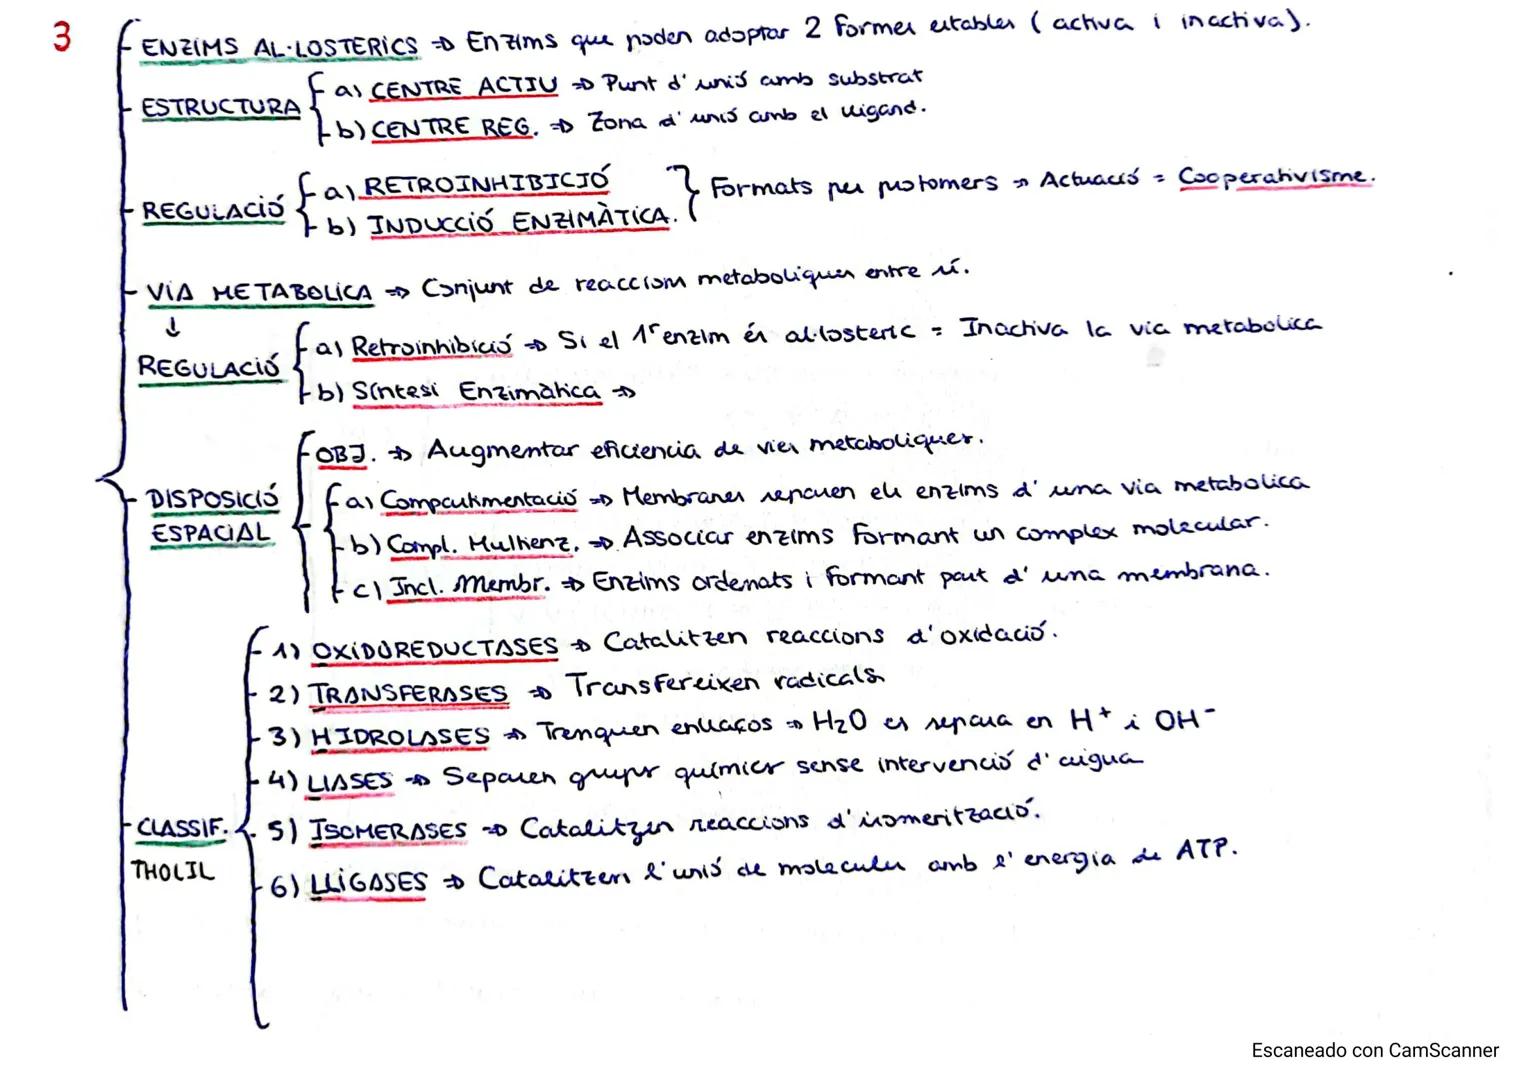 3
ENZIMS AL·LOSTERICS => Enzims que poden adoptar 2 formes estables (activa i inactiva).
ESTRUCTURA
a) CENTRE ACTIU => Punt d'unió amb substrat
b) CENTRE REG. => Zona d'unió amb el lligand.
REGULACIÓ
a) RETROINHIBICIÓ
b) INDUCCIÓ ENZIMÀTICA.
Formats per protomers => Actuació = Cooperativisme.
VIA METABOLICA => Conjunt de reaccions metaboliques entre sí.
↓
REGULACIÓ
a) Retroinhibició => Si el 1r enzim és al·losteric = Inactiva la via metabolica
b) Síntesi Enzimàtica =>
DISPOSICIÓ
ESPACIAL
OBJ. => Augmentar eficiencia de vies metaboliques.
a) Compartimentació => Membranes separen els enzims d'una via metabolica
b) Compl. Multienz. => Associar enzims formant un complex molecular.
c) Incl. Membr. => Enzims ordenats i formant part d'una membrana.
CLASSIF.
THOLIL
1) OXIDOREDUCTASES => Catalitzen reaccions d'oxidació.
2) TRANSFERASES => Transfereixen radicals
3) HIDROLASES => Trenquen enllaços => H2O es separa en H+ i OH-
4) LIASES => Separen grups químics sense intervenció d'aigua
5) ISOMERASES => Catalitzen reaccions d'isomerització.
6) LLIGASES => Catalitzen l'unió de molecules amb l'energia de ATP.
Escaneado con CamScanner